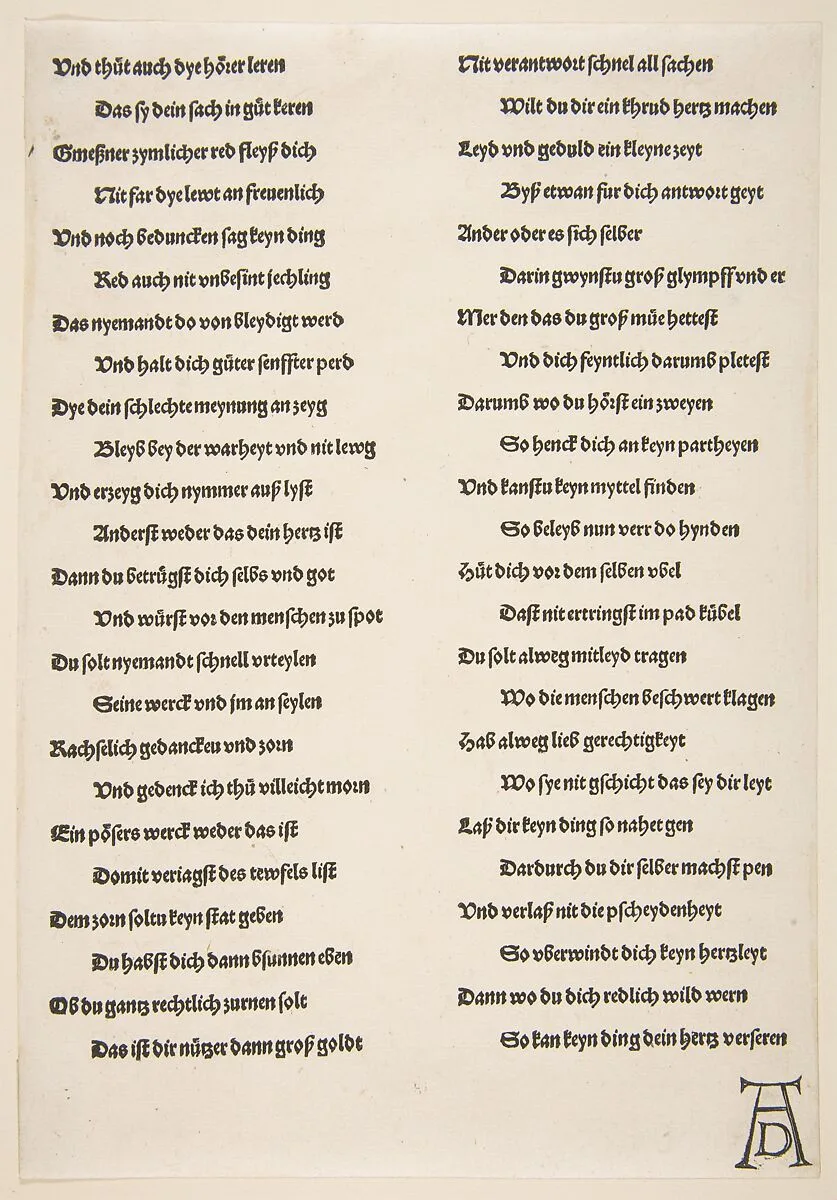 Vnd thůt auch dye hȯrer leren
Das sy dein sach in gůt keren
Gmeßner zymlicher red fleyß dich
Nit far dye lewt an freuenlich
Vnd noch beduncken sag keyn ding
Red auch nit vnbesint jechling
Das nyemandt do von bleydigt werd
Vnd halt dich gůter senffter perd
Dye dein schlechte meynung an zeyg
Bleyb bey der warheyt vnd nit lewg
Vnd erzeyg dich nymmer auß lyst
Anderst weder das dein hertz ist
Dann du betrůgst dich selbs vnd got
Vnd würst vor den menschen zu spot
Du solt nyemandt schnell vrteylen
Seine werck vnd jm an seylen
Rachselich gedanckeu vnd zorn
Vnd gedenck ich thů villeicht morn
Ein pȯsers werck weder das ist
Domit veriagst des tewfels list
Dem zorn soltu keyn stat geben
Du habst dich dann bsunnen eben
Ob du gantz rechtlich zurnen solt
Das ist dir nützer dann groß goldt
Nit verantwort schnel all sachen
Wilt du dir ein khrud hertz machen
Leyd vnd geduld ein kleyne zeyt
Byß etwan fur dich antwort geyt
Ander oder es sich selber
Darin gwynstu groß glympff vnd er
Mer den das du groß müe hettest
Vnd dich feyntlich darumb pletest
Darumb wo du hȯrst ein zweyen
So henck dich an keyn partheyen
Vnd kanstu keyn myttel finden
So beleyb nun verr do hynden
Hüt dich vor dem selben vbel
Dast nit ertringst im pad kübel
Du solt alweg mitleyd tragen
Wo die menschen beschwert klagen
Hab alweg lieb gerechtigkeyt
Wo sye nit gschicht das sey dir leyt
Laß dir keyn ding so nahet gen
Dardurch du dir selber machst pen
Vnd verlaß nit die pscheydenheyt
So vberwindt dich keyn hertzleyt
Dann wo du dich redlich wild wern
So kan keyn ding dein hertz verseren
AD